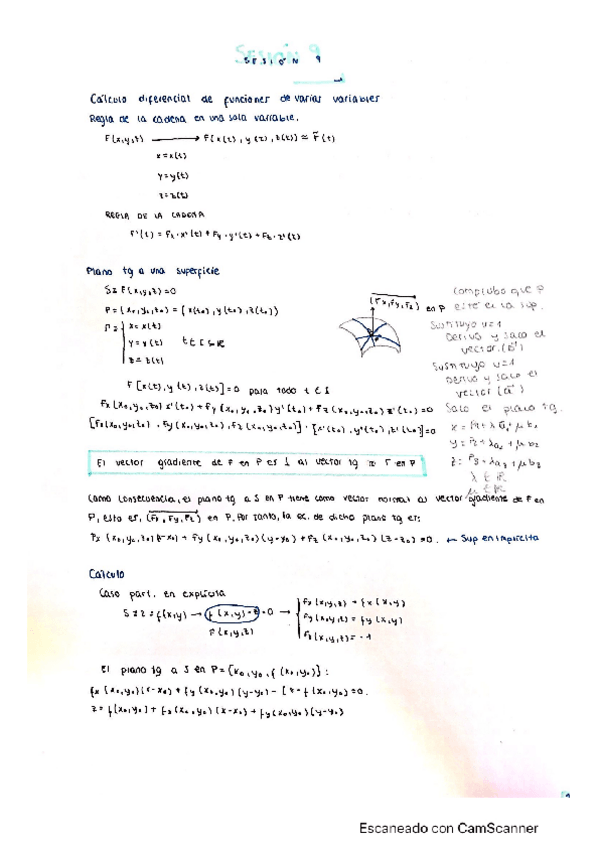 SESIÓN 9
Cálculo diferencial de funciones de varias variables
Regla de la cadena en una sola variable.
F(x,y,z) → F(x(t), y(t), z(t)) ≃ F̃(t)
x = x(t)
y = y(t)
z = z(t)
REGLA DE LA CADENA
F'(t) = Fx · x'(t) + Fy · y'(t) + Fz · z'(t)
Plano tg a una superficie
S ≡ F(x,y,z) = 0
P = (x₀, y₀, z₀) = (x(t₀), y(t₀), z(t₀))
Γ ≡ { x = x(t)
y = y(t) t ∈ I ⊆ ℝ
z = z(t)
(Fx, Fy, Fz) en P
Compruebo que P
esté en la sup.
Sustituyo u=1
Derivo y saco el
vector (b⃗)
Sustituyo u=1
Derivo y saco el
vector (a⃗)
Saco el plano tg.
x = P₁ + λa₁ + μb₁
y = P₂ + λa₂ + μb₂
z = P₃ + λa₃ + μb₃
λ ∈ ℝ
μ ∈ ℝ
F[x(t), y(t), z(t)] = 0 para todo t ∈ I
Fx(x₀,y₀,z₀) x'(t₀) + Fy(x₀,y₀,z₀) y'(t₀) + Fz(x₀,y₀,z₀) z'(t₀) = 0
[Fx(x₀,y₀,z₀), Fy(x₀,y₀,z₀), Fz(x₀,y₀,z₀)] · [x'(t₀), y'(t₀), z'(t₀)] = 0
El vector gradiente de F en P es ⊥ al vector tg a Γ en P
Como consecuencia, el plano tg a S en P tiene como vector normal al vector gradiente de F en
P, esto es, (Fx, Fy, Fz) en P. Por tanto, la ec. de dicho plano tg es:
Fx(x₀,y₀,z₀)(x-x₀) + Fy(x₀,y₀,z₀)(y-y₀) + Fz(x₀,y₀,z₀)(z-z₀) = 0. ← Sup en implícita
Cálculo
Caso part. en explícita
S ≡ z = f(x,y) → f(x,y) - z = 0 → { Fx(x,y,z) = fx(x,y)
Fy(x,y,z) = fy(x,y)
F(x,y,z)
Fz(x,y,z) = -1
El plano tg a S en P = (x₀, y₀, f(x₀,y₀)):
fx(x₀,y₀)(x-x₀) + fy(x₀,y₀)(y-y₀) - [z - f(x₀,y₀)] = 0.
z = f(x₀,y₀) + fx(x₀,y₀)(x-x₀) + fy(x₀,y₀)(y-y₀)
Escaneado con CamScanner